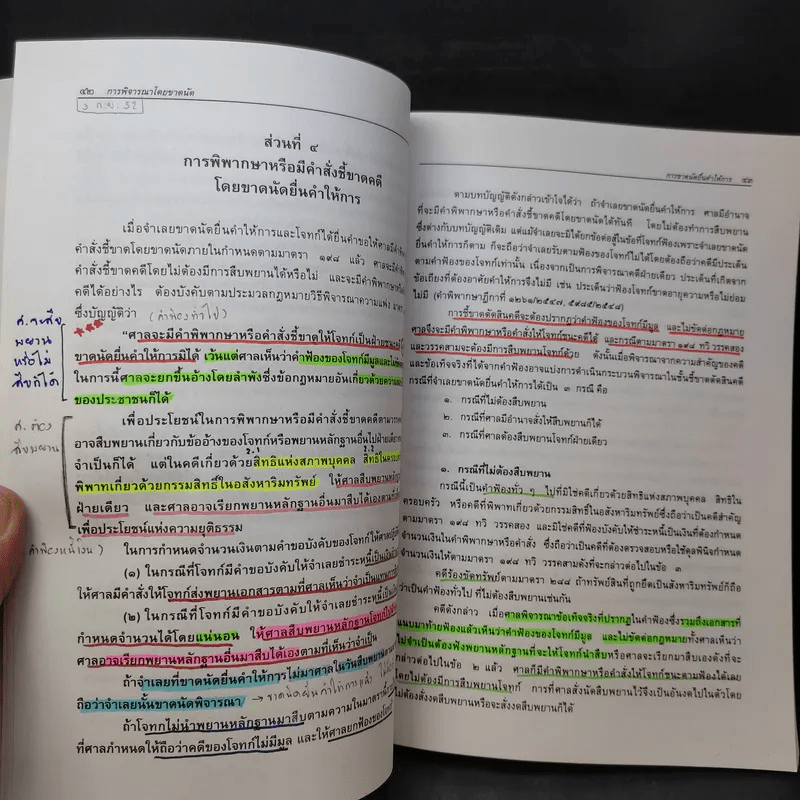 ๔๒ การพิจารณาโดยขาดนัด
3 ก.ย. 52
ส่วนที่ ๔
การพิพากษาหรือมีคำสั่งชี้ขาดคดี
โดยขาดนัดยื่นคำให้การ
เมื่อจำเลยขาดนัดยื่นคำให้การและโจทก์ได้ยื่นคำขอให้ศาลมีคำ
คำสั่งชี้ขาดโดยขาดนัดภายในกำหนดตามมาตรา ๑๙๘ แล้ว ศาลจะมี
คำสั่งชี้ขาดคดีโดยไม่ต้องมีการสืบพยานได้หรือไม่ และจะมีคำพิพากษา
คดีได้อย่างไร ต้องบังคับตามประมวลกฎหมายวิธีพิจารณาความแพ่ง
ซึ่งบัญญัติว่า (คำฟ้องทั่วไป)
"ศาลจะมีคำพิพากษาหรือคำสั่งชี้ขาดให้โจทก์เป็นฝ่ายชนะคดี
ขาดนัดยื่นคำให้การมิได้ เว้นแต่ศาลเห็นว่าคำฟ้องของโจทก์มีมูลและไม่ขัด
ในการนี้ศาลจะยกขึ้นอ้างโดยลำพังซึ่งข้อกฎหมายอันเกี่ยวด้วยความ
ของประชาชนก็ได้
เพื่อประโยชน์ในการพิพากษาหรือมีคำสั่งชี้ขาดคดีตามวรรค
อาจสืบพยานเกี่ยวกับข้ออ้างของโจทก์หรือพยานหลักฐานอื่นไปฝ่ายเดียว
จำเป็นก็ได้ แต่ในคดีเกี่ยวด้วยสิทธิแห่งสภาพบุคคล สิทธิในครอบ
พิพาทเกี่ยวด้วยกรรมสิทธิ์ในอสังหาริมทรัพย์ ให้ศาลสืบพยานหลักฐาน
ฝ่ายเดียว และศาลอาจเรียกพยานหลักฐานอื่นมาสืบได้เองตามที่
เพื่อประโยชน์แห่งความยุติธรรม
ในการกำหนดจำนวนเงินตามคำขอบังคับของโจทก์ให้ศาล
(๑) ในกรณีที่โจทก์มีคำขอบังคับให้จำเลยชำระหนี้เป็นเงิน
ให้ศาลมีคำสั่งให้โจทก์ส่งพยานเอกสารตามที่ศาลเห็นว่าจำเป็นแทนการ
(๒) ในกรณีที่โจทก์มีคำขอบังคับให้จำเลยชำระหนี้เป็น
กำหนดจำนวนได้โดยแน่นอน ให้ศาลสืบพยานหลักฐานโจทก์ไป
ศาลอาจเรียกพยานหลักฐานอื่นมาสืบได้เองตามที่เห็นว่าจำเป็น
ถ้าจำเลยที่ขาดนัดยื่นคำให้การไม่มาศาลในวันสืบพยาน
ถือว่าจำเลยนั้นขาดนัดพิจารณา
ถ้าโจทก์ไม่นำพยานหลักฐานมาสืบตามความในมาตรานี้
ที่ศาลกำหนดให้ถือว่าคดีของโจทก์ไม่มีมูล และให้ศาลยกฟ้องของโจทก์
ศ. จะสืบ
พยาน
หรือไม่
สืบก็ได้
ศ. ต้อง
สืบพยาน
คำฟ้องหนี้เงิน
การขาดนัดยื่นคำให้การ ๔๓
ตามบทบัญญัติดังกล่าวเข้าใจได้ว่า ถ้าจำเลยขาดนัดยื่นคำให้การ ศาลมีอำนาจ
ที่จะมีคำพิพากษาหรือคำสั่งชี้ขาดคดีโดยขาดนัดได้ทันที โดยไม่ต้องทำการสืบพยาน
ซึ่งต่างกับบทบัญญัติเดิม แต่แม้จำเลยจะมิได้ยกข้อต่อสู้ในข้อที่โจทก์ฟ้องเพราะจำเลยขาดนัด
ยื่นคำให้การก็ตาม ก็จะถือว่าจำเลยรับตามฟ้องของโจทก์ไม่ได้โดยต้องถือว่าคดีมีประเด็น
ตามคำฟ้องของโจทก์เท่านั้น เนื่องจากเป็นการพิจารณาคดีฝ่ายเดียว ประเด็นที่เกิดจาก
ข้อเถียงที่ต้องอาศัยคำให้การจึงไม่มี เช่น ประเด็นว่าฟ้องโจทก์ขาดอายุความหรือไม่ย่อม
ไม่มี (คำพิพากษาฎีกาที่ ๑๒๖๑/๒๕๔๗, ๕๙๘๕/๒๕๔๘)
การชี้ขาดตัดสินคดีจะต้องปรากฏว่าคำฟ้องของโจทก์มีมูล และไม่ขัดต่อกฎหมาย
ศาลจึงจะมีคำพิพากษาหรือคำสั่งให้โจทก์ชนะคดีได้ และกรณีตามมาตรา ๑๙๘ ทวิ วรรคสอง
และวรรคสามจะต้องมีการสืบพยานโจทก์ด้วย ดังนั้นเมื่อพิจารณาจากความสำคัญของคดี
และข้อเท็จจริงที่ได้จากคำฟ้องอาจแบ่งการดำเนินกระบวนพิจารณาในชั้นชี้ขาดตัดสินคดี
กรณีที่จำเลยขาดนัดยื่นคำให้การได้เป็น ๓ กรณี คือ
๑. กรณีที่ไม่ต้องสืบพยาน
๒. กรณีที่ศาลมีอำนาจสั่งให้สืบพยานก็ได้
๓. กรณีที่ศาลต้องสืบพยานโจทก์ฝ่ายเดียว
๑. กรณีที่ไม่ต้องสืบพยาน
กรณีนี้เป็นคำฟ้องทั่ว ๆ ไปที่มิใช่คดีเกี่ยวด้วยสิทธิแห่งสภาพบุคคล สิทธิใน
ครอบครัว หรือคดีที่พิพาทเกี่ยวด้วยกรรมสิทธิ์ในอสังหาริมทรัพย์ซึ่งถือว่าเป็นคดีสำคัญ
ตามมาตรา ๑๙๘ ทวิ วรรคสอง และมิใช่คดีที่ฟ้องบังคับให้ชำระหนี้เป็นเงินที่ต้องกำหนด
จำนวนเงินในคำพิพากษาหรือคำสั่ง ซึ่งถือว่าเป็นคดีที่ต้องตรวจสอบหรือใช้ดุลพินิจกำหนด
จำนวนเงินให้ตามมาตรา ๑๙๘ ทวิ วรรคสามดังที่จะกล่าวต่อไปในข้อ ๓
คดีร้องขัดทรัพย์ตามมาตรา ๒๘๘ ถ้าทรัพย์สินที่ถูกยึดเป็นสังหาริมทรัพย์ก็ถือ
ว่าเป็นคำฟ้องทั่วไป ที่ไม่ต้องสืบพยานเช่นกัน
คดีดังกล่าว เมื่อศาลพิจารณาข้อเท็จจริงที่ปรากฏในคำฟ้องซึ่งรวมถึงเอกสารที่
แนบมาท้ายฟ้องแล้วเห็นว่าคำฟ้องของโจทก์มีมูล และไม่ขัดต่อกฎหมายทั้งศาลเห็นว่า
ไม่จำเป็นต้องฟังพยานหลักฐานที่จะให้โจทก์นำสืบหรือศาลจะเรียกมาสืบเองดังที่จะ
กล่าวต่อไปในข้อ ๒ แล้ว ศาลก็มีคำพิพากษาหรือคำสั่งให้โจทก์ชนะคดีตามฟ้องได้เลย
โดยไม่ต้องมีการสืบพยานโจทก์ การที่ศาลสั่งนัดสืบพยานไว้จึงเป็นอันงดไปในตัวโดย
ไม่ต้องสั่งงดสืบพยานหรือจะสั่งงดสืบพยานก็ได้